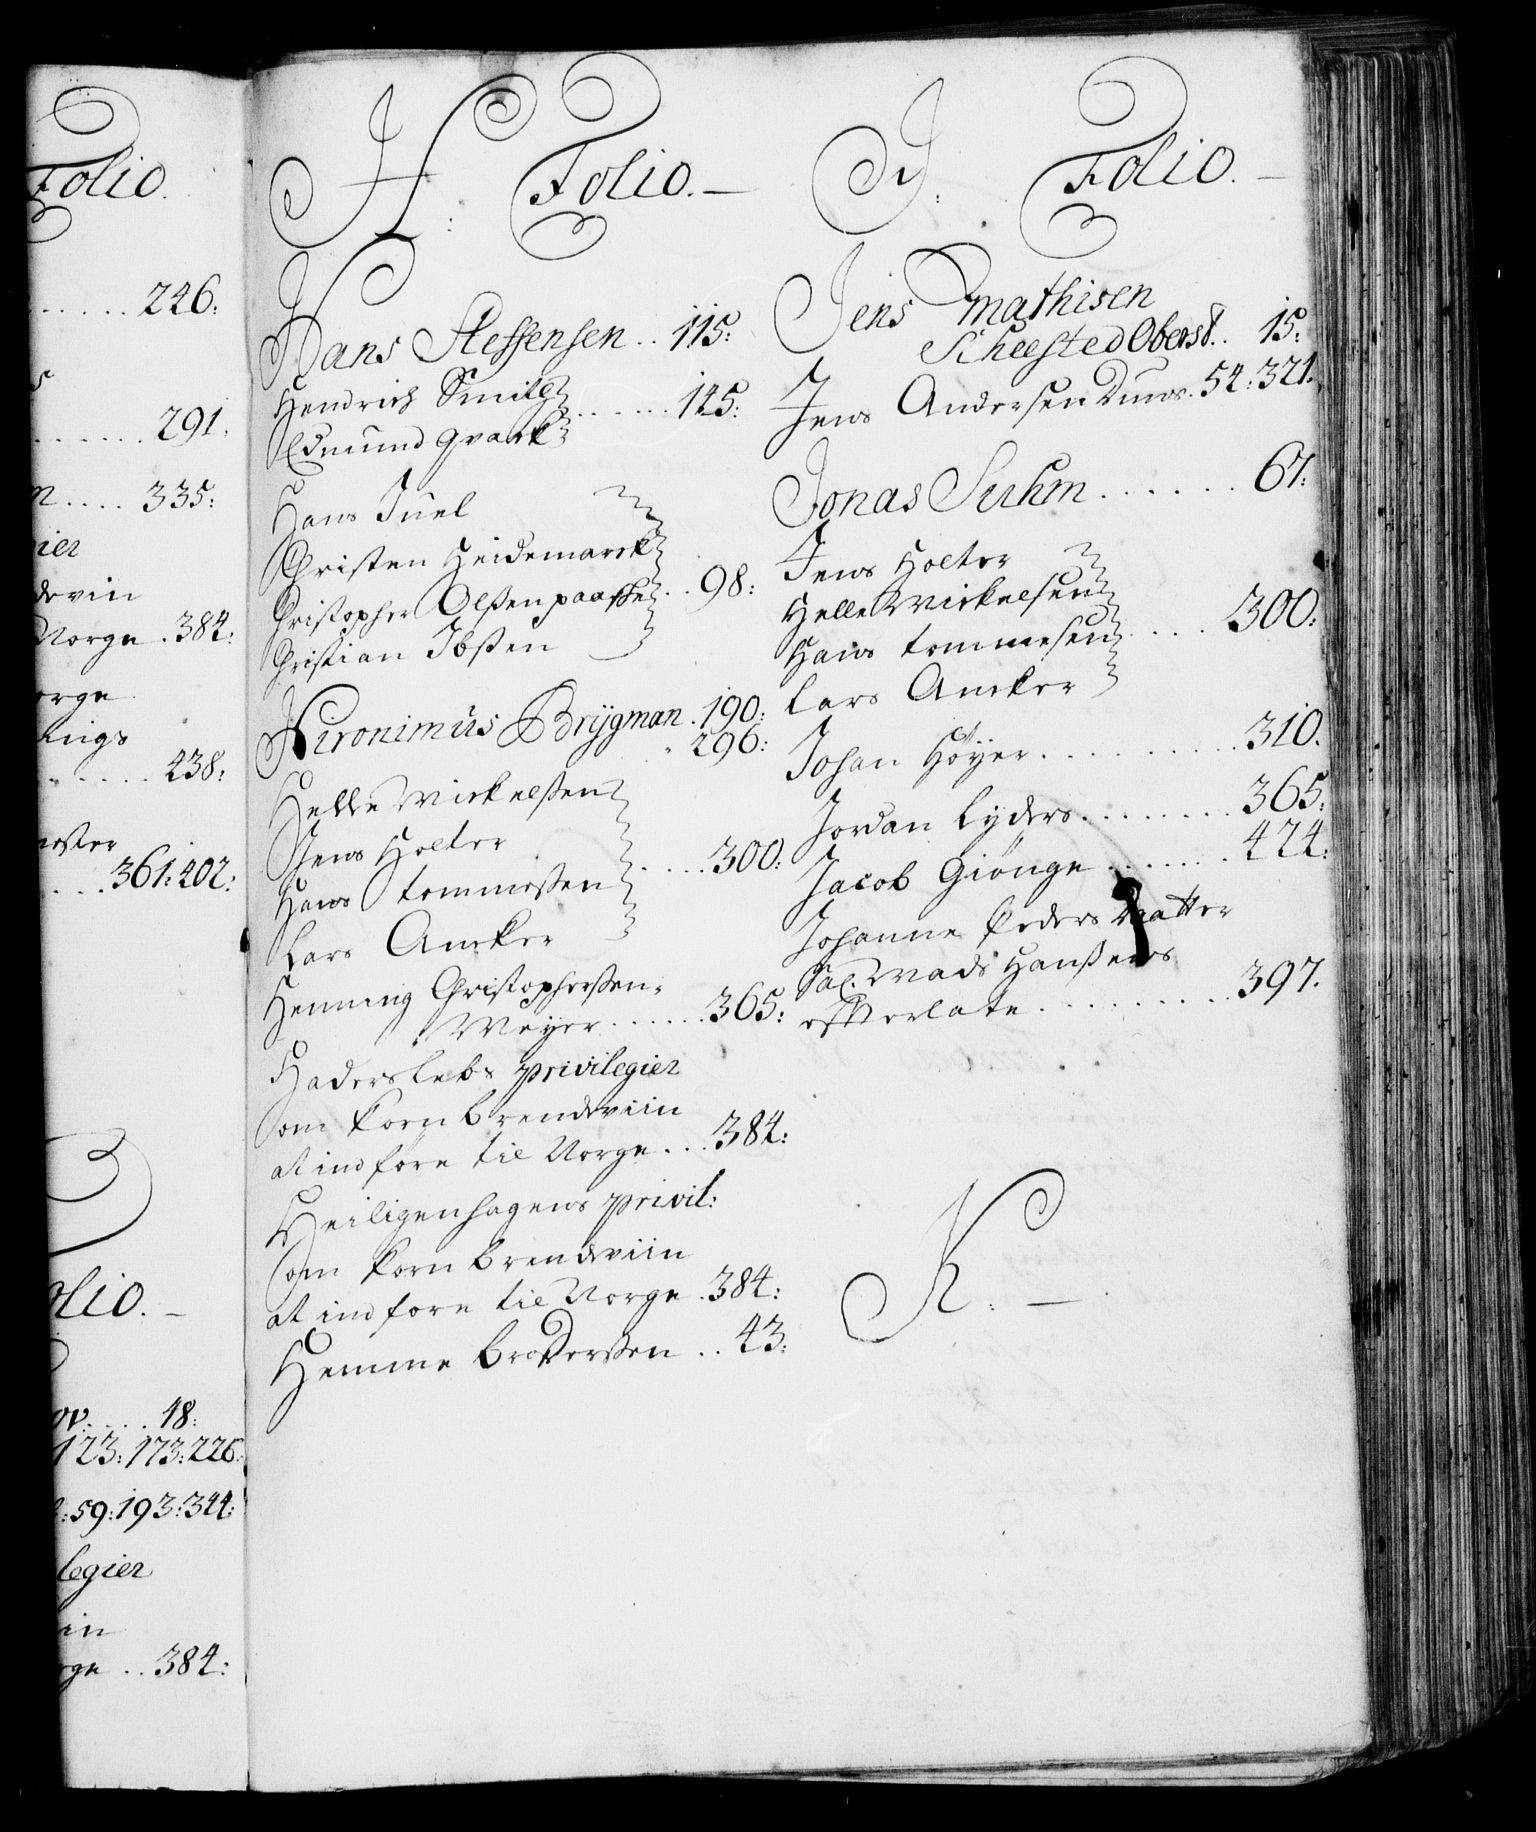 Folio.
246:
291.
335:
ier
Norge . 384:
orge
438:
361: 402:
olio.
48:
123: 173: 226:
59: 193: 344:
legier
in
rge .. 384:
H: Folio.
Hans Steffensen .. 115:
Hendrich Smill
Edmund Qvark ....... 145:
Hans Juel
Christen Heidemarck
Christopher Olßen paaske .. 98:
Christian Ibßen
Hironimus Brÿgman . 190:
296:
Helle Mickelßen
Jens Holter
Hans tommeßen .... 300:
Lars Ancker
Henning Christopherßen
Meyer ...... 365:
Haderslebs privilegier
om korn brendeviin
at indføre til Norge ... 384:
Heiligenhagens privil:
om korn brendeviin
at indføre til Norge . 384:
Hemme broderßen .. 43:
J. Folio.
Jens Mathisen
Scheested Oberst .. 15:
Jens Andersen Duus . 54: 321.
Jonas Suhm ...... 67:
Jens Holter
Helle Mickelsen
Hans tommesen .... 300:
Lars Ancker
Johan Höyer .......... 310.
Jordan Lyders ........ 365:
Jacob Giönge ....... 424:
Johanne Peders datter
Sal. Mads Hanßens
efterlatte ......... 397.
K. —